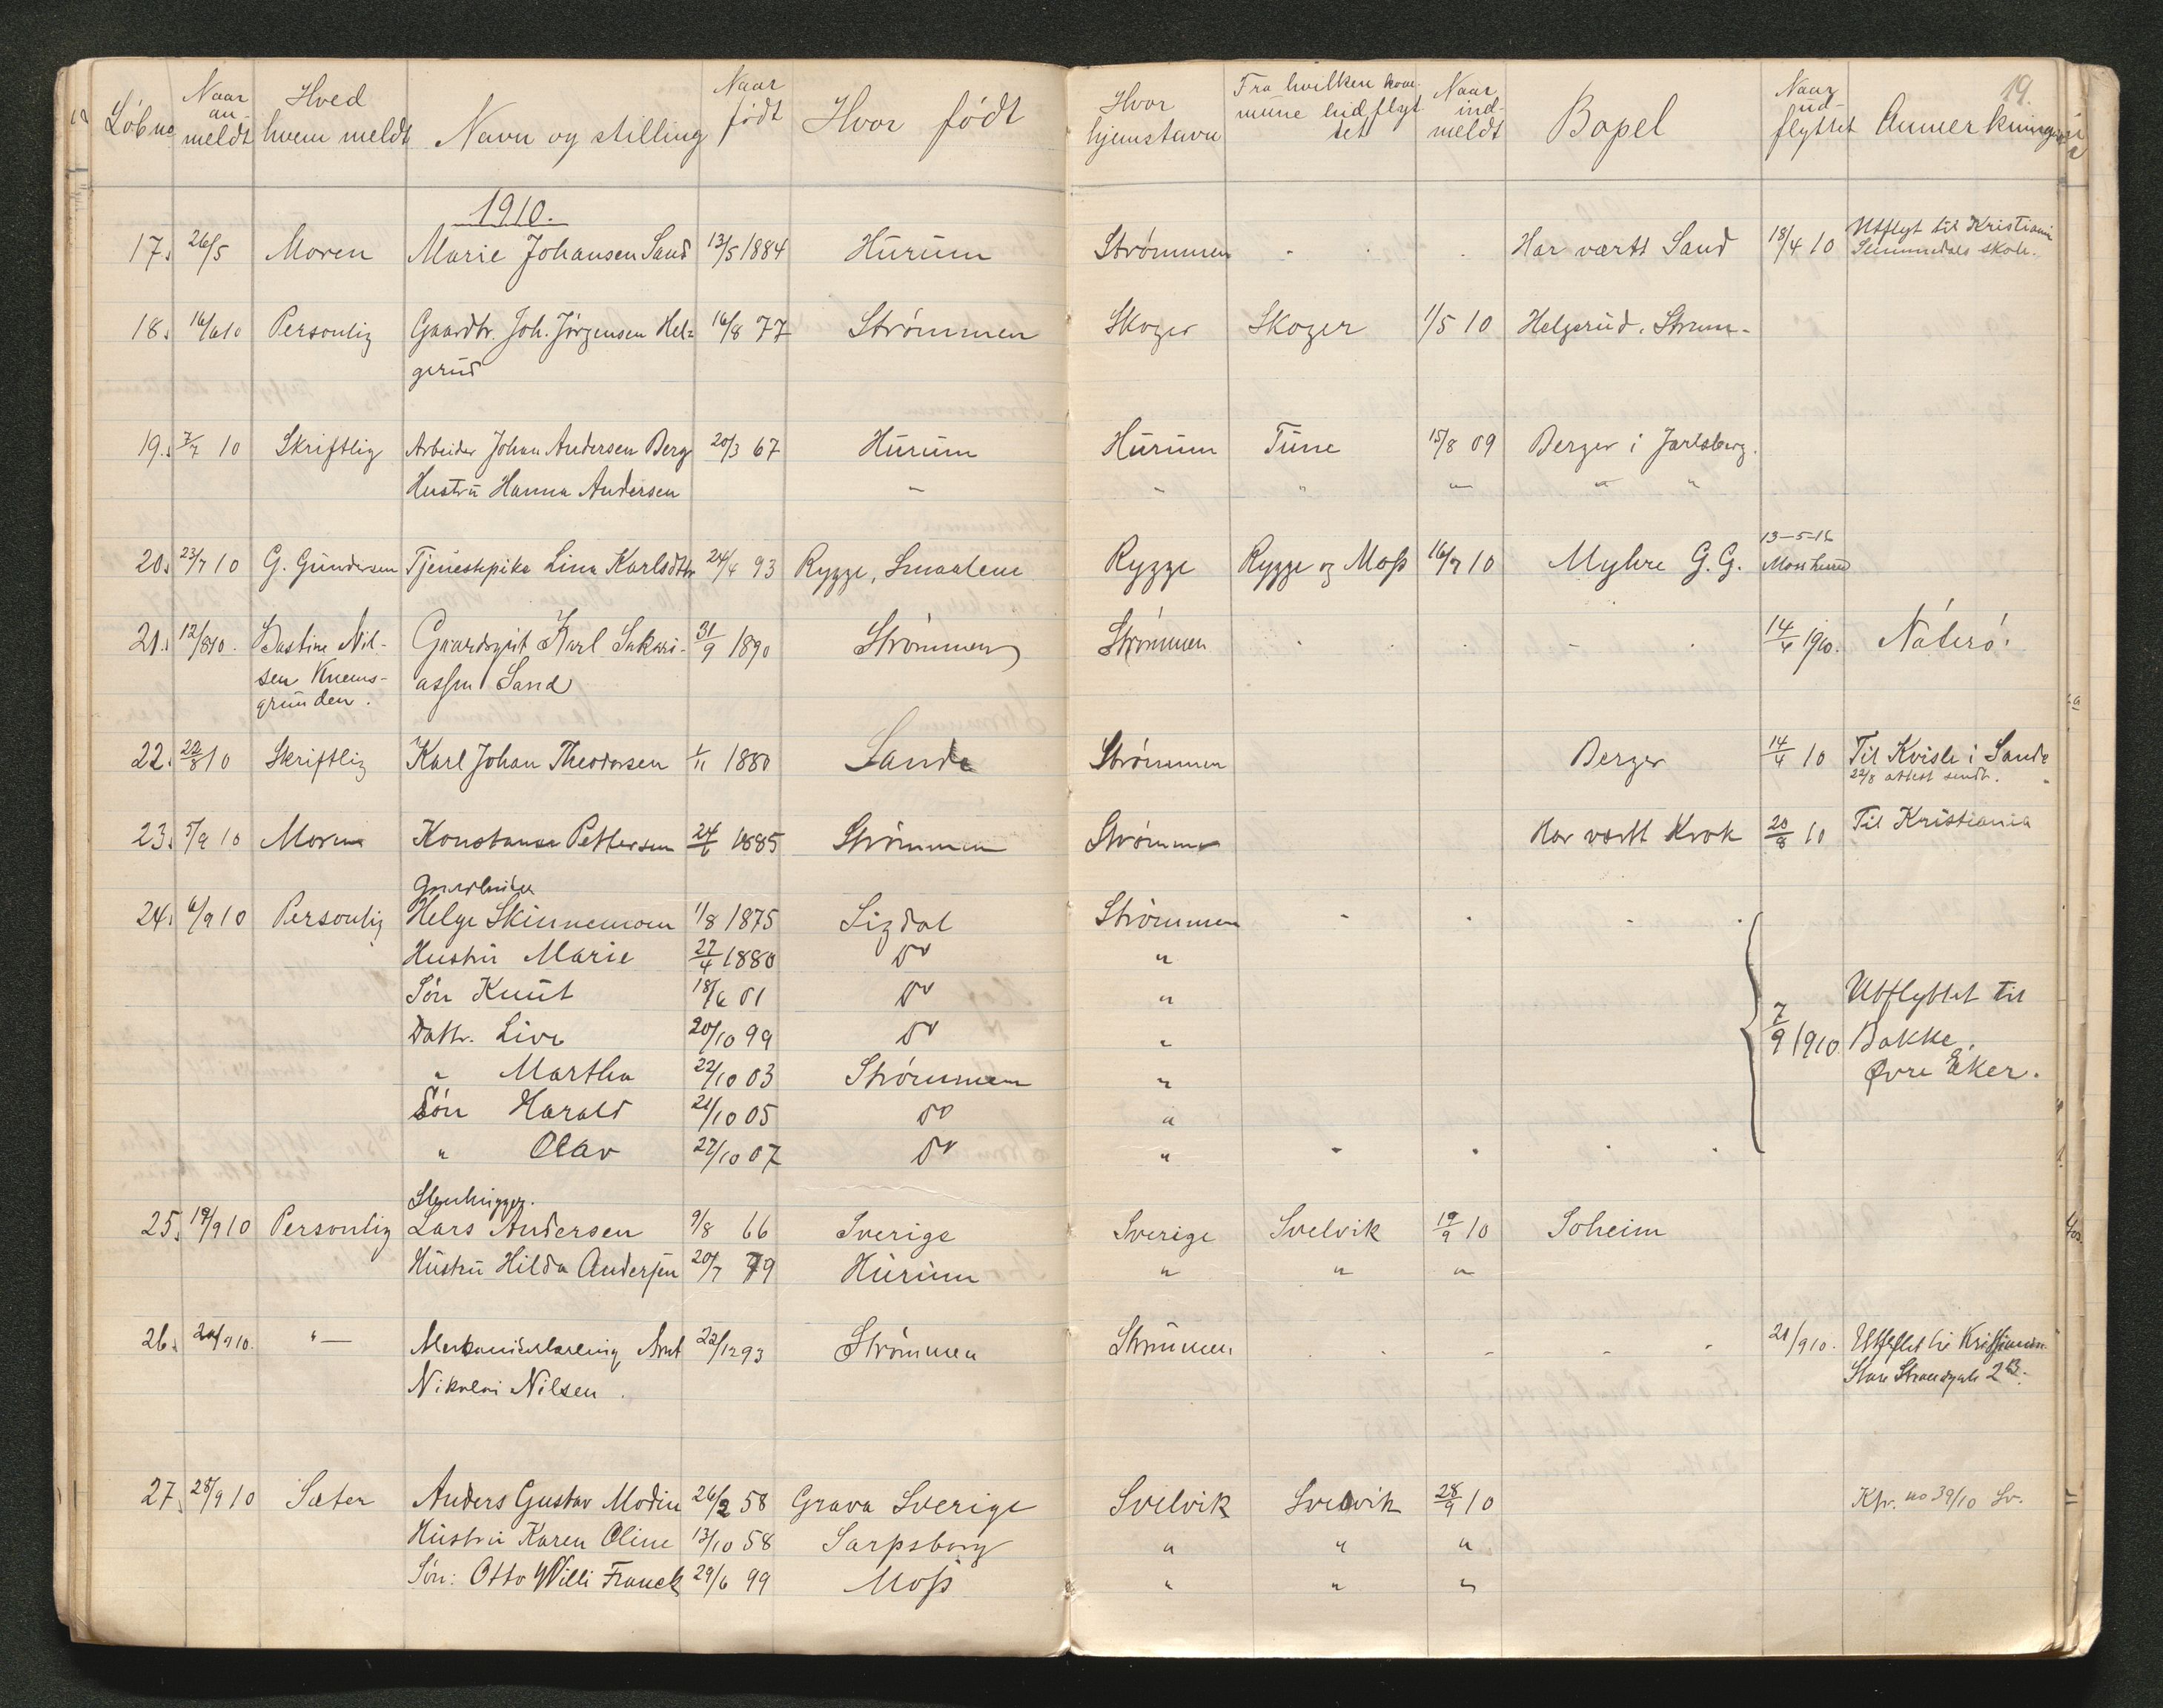 19.
Løbno | Naar anmeldt | Hved hvem meldt | Navn og stilling | Naar født | Hvor født | Hvor hjemstavn | Fra hvilken kommune indflyttet | Naar indmeldt | Bopel | Naar udflyttet | Anmerkninger
1910.
17. 26/5 Moren Marie Johansen Sand 13/5 1884 Hurum Strømmen - - - Har vært Sand 18/4 10 Utflyt til Kristiania
skole.
18. 16/6 10 Personlig Gaardbr. Joh. Jørgensen Hel= 16/8 77 Strømmen Skoger Skoger 1/5 10 Helgerud. Strøm-
gerud
19. 7/7 10 Skriftlig Arbeider Johan Andersen Berg 20/3 67 Hurum Hurum Tune 15/8 09 Berger i Jarlsberg.
Hustru Hanna Andersen - - " " " "
20. 23/7 10 G. Gundersen Tjenestpike Lina Karlsdtr 24/4 93 Rygge, Smaalene Rygge Rygge og Moss 16/7 10 Myhre G. G. 13-5-16
21. 12/8 10. Bastine Nil- Gaardsgut Karl Sakari- 31/9 1890 Strømmen Strømmen - - - - - 14/4 1910. Nøterø.
sen Knems- assen Sand
grunden.
22. 22/8 10 Skriftlig Karl Johan Theodorsen 1/11 1880 Sande Strømmen Berger 14/4 10 Til Kvisle i Sande
22/8 attest sendt.
23. 5/9 10 Moren Konstanse Pettersen 24/6 1885 Strømmen Strømmen Har vært Krok 20/8 10 Til Kristiania
Gaardbruker
24. 6/9 10 Personlig Helge Skinnemoen 1/8 1875 Sigdal Strømmen - - - -
Hustru Marie 27/4 1880 do "
Søn Knut 18/6 01 do "
Dattr. Live 20/10 99 do " 7/9 1910. Utflyttet til
Bakke,
Øvre Eker.
" Martha 22/10 03 Strømmen "
Søn Harald 21/10 05 do "
" Olav 27/10 07 do " - - - -
Stenhugger.
25. 19/9 10 Personlig Lars Andersen 9/8 66 Sverige Sverige Svelvik 19/9 10 Soheim
Hustru Hilda Andersen 20/7 79 Hurum " " "
26. 20/9 10. "- Arnt 22/12 93 Strømmen Strømmen - - - - - 21/9 10. Utflyttet til Kristiania
Nikolai Nilsen.
Store Strandgate 23.
27. 28/9 10 Sæter Anders Gustav Modin 26/2 58 Grava Sverige Svelvik Svelvik 28/9 10 Kfr. no 39/10 Sv.
Hustru Karen Oline 13/10 58 Sarpsborg " " "
Søn: Otto Willi Franck 29/6 99 Moss " " "